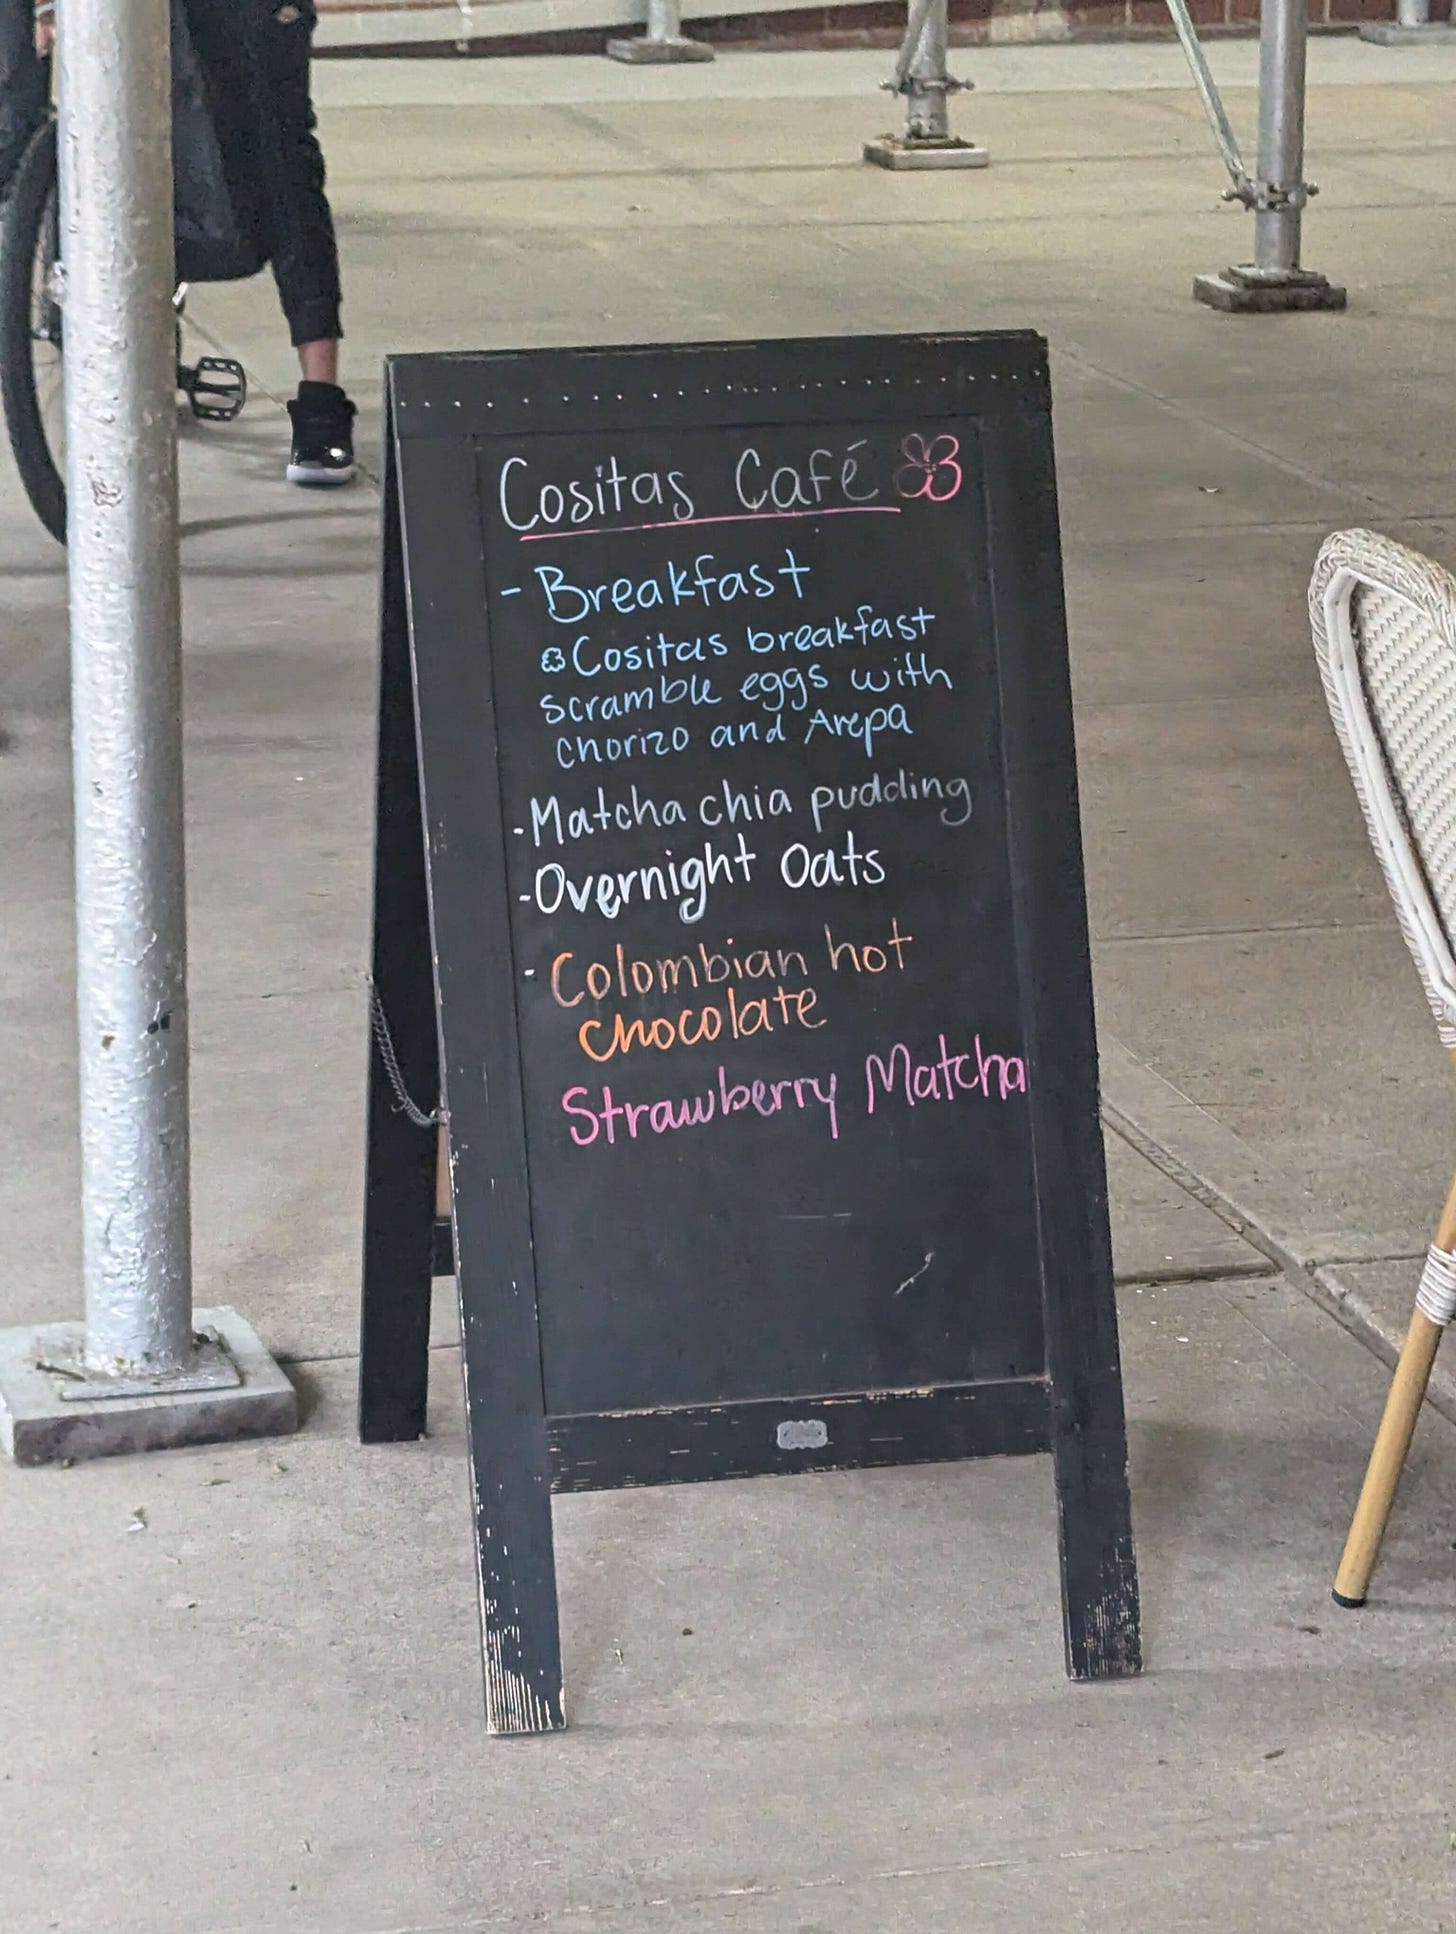 Cositas Café
- Breakfast
Cositas breakfast
scramble eggs with
chorizo and Arepa
- Matcha chia pudding
- Overnight Oats
- Colombian hot
chocolate
Strawberry Matcha